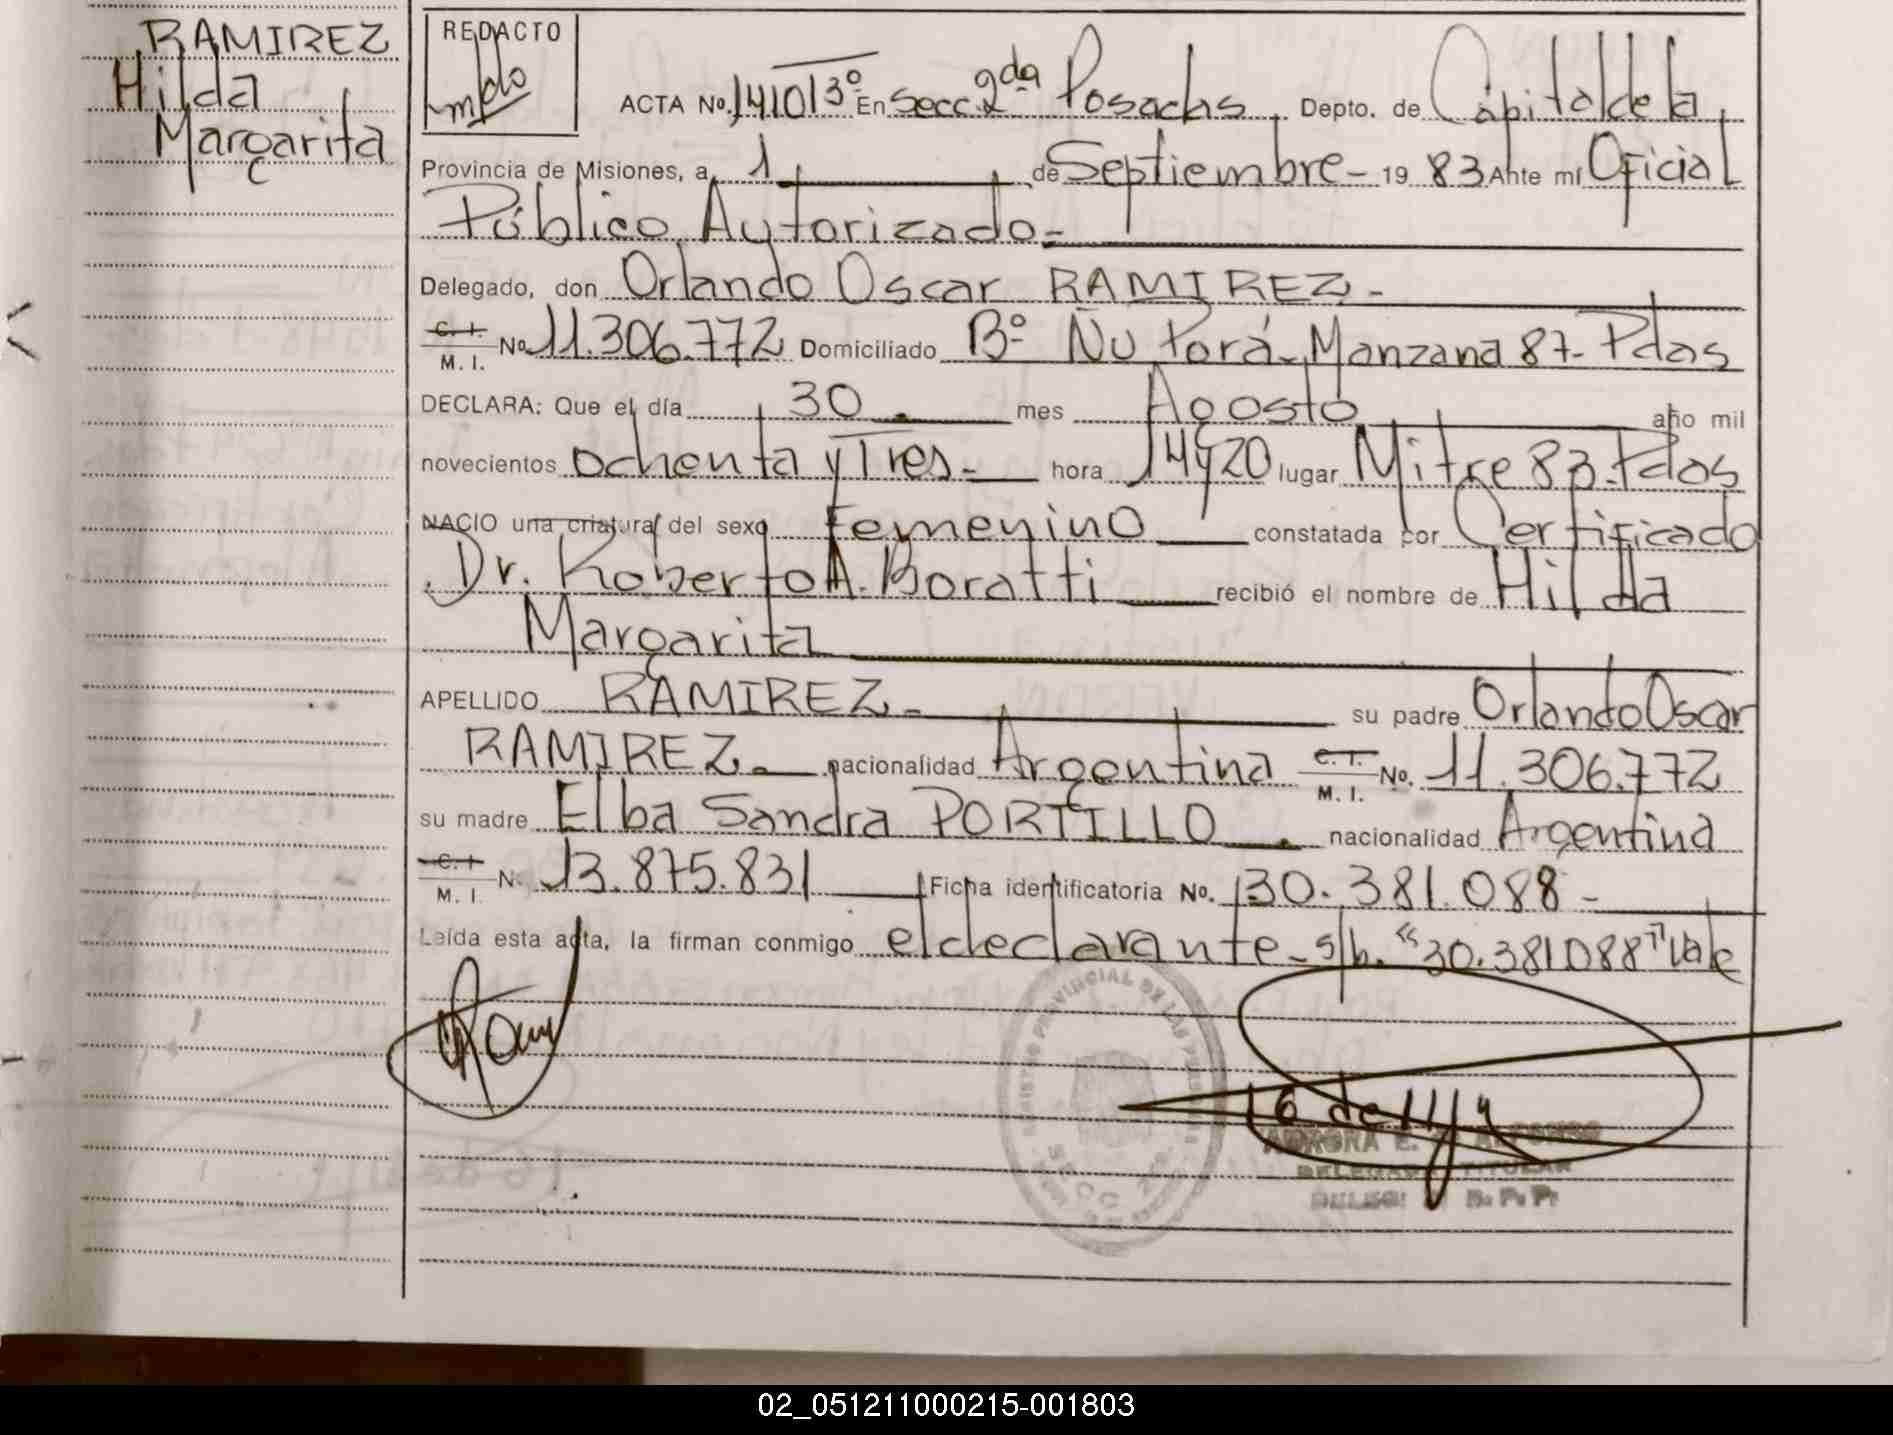 RAMIREZ
Hilda
Margarita
REDACTO
ACTA No. 1410 13° En Secc. 2da Posadas, Depto. de Capital de la
Provincia de Misiones, a 1 de Septiembre - 19 83 Ante mi Oficial
Público Autorizado -
Delegado, don Orlando Oscar RAMIREZ -
C. I. M. I. No 11.306.772 Domiciliado B° Ñu Porá - Manzana 87 - Pdas
DECLARA: Que el día 30 mes Agosto año mil
novecientos ochenta y Tres - hora 14 y 20 lugar Mitre 83 - Pdas
NACIO una criatura del sexo Femenino constatada por Certificado
Dr. Roberto A. Boratti recibió el nombre de Hilda
Margarita
APELLIDO RAMIREZ - su padre Orlando Oscar
RAMIREZ - nacionalidad Argentina C. I. M. I. No. 11.306.772
su madre Elba Sandra PORTILLO nacionalidad Argentina
C. I. M. I. N. 13.875.831 Ficha identificatoria No. 30.381.088 -
Leída esta acta, la firman conmigo el declarante - s/b. "30.381088" Vale
REGISTRO PROVINCIAL DE LAS PERSONAS
DELEGADA TITULAR
R. P. P.
02_051211000215-001803